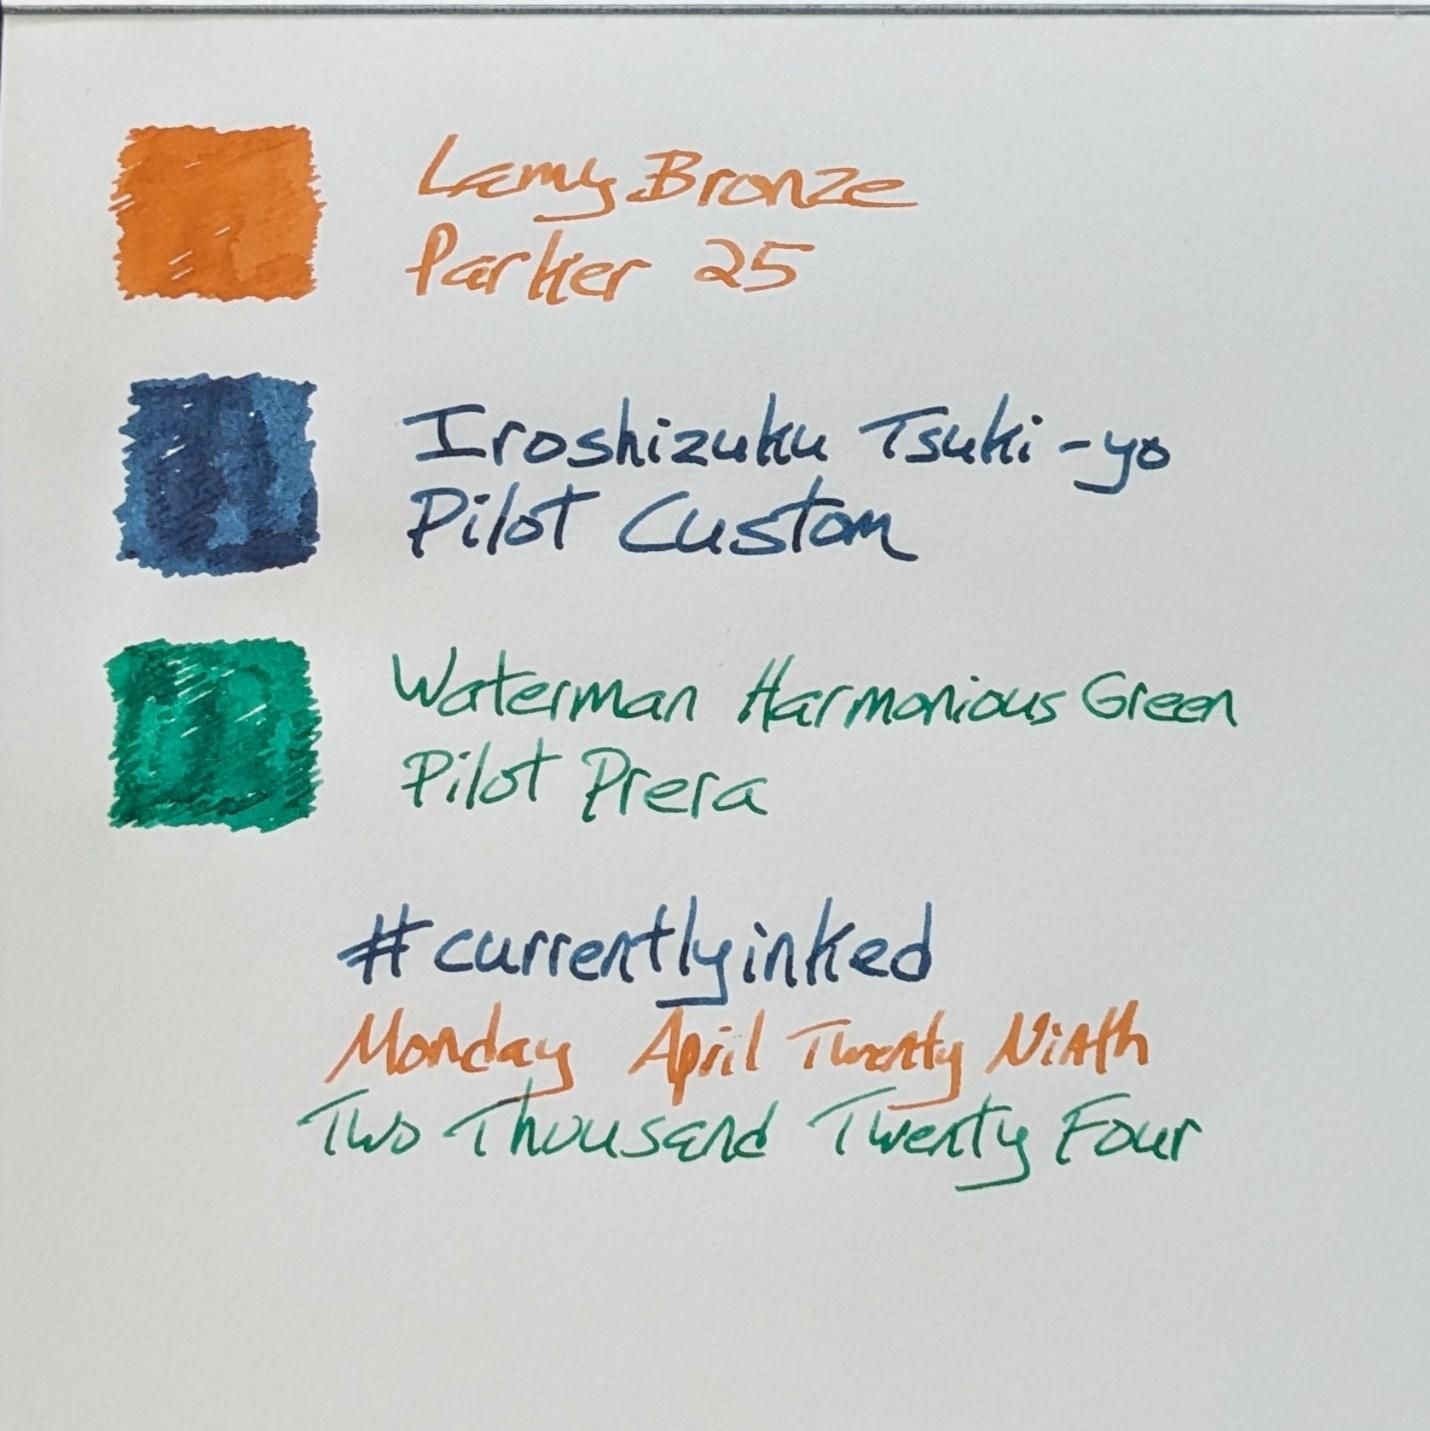 Lamy Bronze
Parker 25
Iroshizuku Tsuki-yo
Pilot Custom
Waterman Harmonious Green
Pilot Prera
#currentlyinked
Monday April Twenty Ninth
Two Thousand Twenty Four